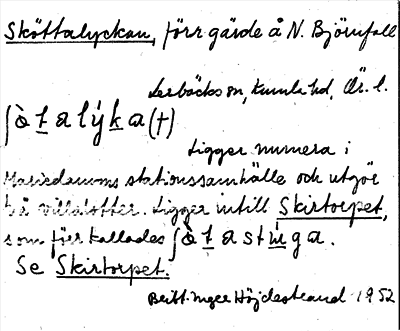 Sköttalyckan, förr gärde å N. Björnfall
Lerbäcks sn, Kumla hd, Ör. l.
ʃò̀t̲alýk̲a(t)
Ligger numera i
Mariedamms stationssamhälle och utgör
två villatomter. Ligger intill Skirtorpet,
som förr kallades ʃò̀t̲astúga.
Se Skirtorpet.
Britt Inger Höjdestrand 1952